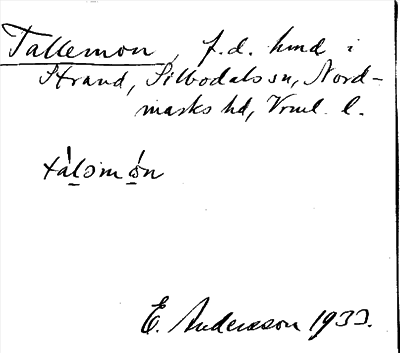 Tallemon, f.d. hmd i
Strand, Silbodals sn, Nord-
marks hd, Vrml. l.
tàlsmòn
E. Andersson 1933.